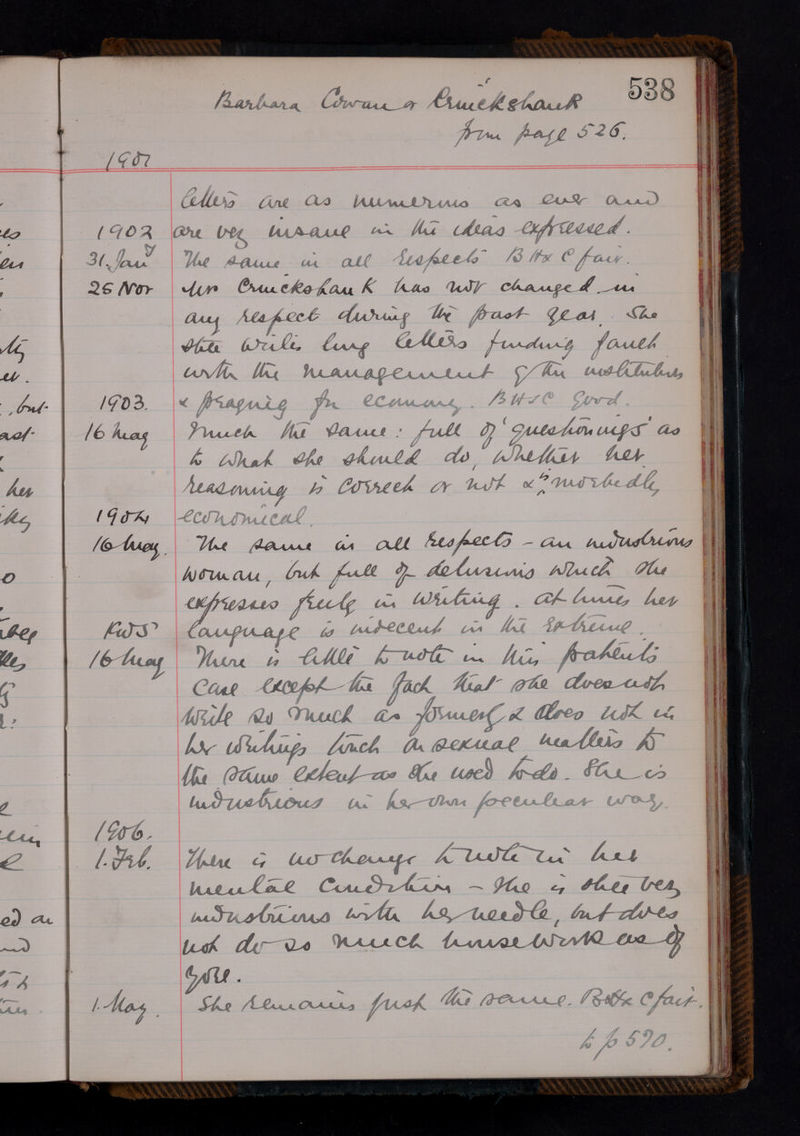 538
Barbara Cowan or Cruickshank
from page 526.
1901
letters are as numerous as ever and
1902 are very insane in the ideas expressed.
31. Jany The same in all respects B Hx C fair.
25 Nov Mrs Cruickshank has not changed in
any respect during the past year. She
still writes long letters finding fault
with the management of the institution
1903. & preaching for economy. BH&C good.
16 May Much the same: full of 'questionings' as
to what she should do, whether her
reasoning is correct or not & is morbidly
1904 economical.
16 May. The same in all respects – an industrious
woman, but full of delusions which she
expresses freely in writing. At times her
language is indecent in the extreme.
16 May There is little to note in this patient's
case except the fact that she does not
write so much as formerly & does not in
her writings touch on sexual matters to
the same extent as she used to do. She is
industrious in her own peculiar way.
1906.
1. Feb. There is no change to note in her
mental condition – She is still very
industrious with her needle, but does
not do so much housework as of
yore.
1. May. She remains just the same. B Hx C fair.
to p 590.